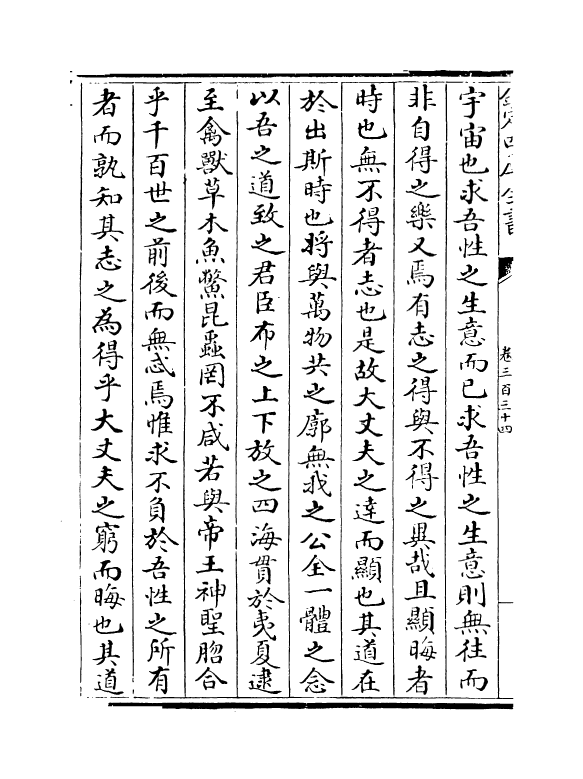 欽定四庫全書
卷三百三十四
宇宙也求吾性之生意而已求吾性之生意則無往而
非自得之樂又焉有志之得與不得之異哉且顯晦者
時也無不得者志也是故大丈夫之達而顯也其道在
於出斯時也將與萬物共之廓無我之公全一體之念
以吾之道致之君臣布之上下放之四海貫於夷夏逮
至禽獸草木魚鱉昆蟲罔不咸若與帝王神聖脗合
乎千百世之前後而無忒焉惟求不負於吾性之所有
者而孰知其志之為得乎大丈夫之窮而晦也其道